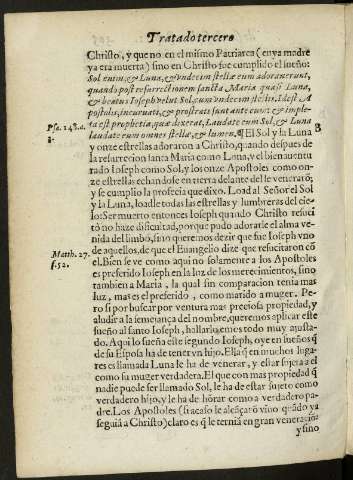 Tratado tercero
Christo, y que no en el mismo Patriarca (cuya madre
ya era muerta) sino en Christo fue cumplido el sueño:
Sol enim, & Luna, & vndecim stellæ eum adorauerunt,
quando post resurrectionem sancta Maria quasi Luna,
& beatus Ioseph velut Sol, cum vndecim stellis. Idest A
postolis, incuruati, & prostrati sunt ante eum: & imple-
ta est prophetia, quæ dixerat, Laudate eum Sol, & Luna
laudate eum omnes stellæ, & lumen. ¶ El Sol y la Luna
Psa. 148. a.
3.
8
y onze estrellas adoraron a Christo, quando despues de
la resurrecion santa Maria como Luna, y el bien auentu
rado Ioseph como Sol, y los onze Apostoles como on-
ze estrellas echandose en tierra delante del le venerarõ;
y se cumplio la profecia que dixo. Load al Señor el Sol
y la Luna, loadle todas las estrellas y lumbreras del cie-
lo: Ser muerto entonces Ioseph quando Christo resuci
tò no haze dificultad, porque pudo adorarle el alma ve-
nida del limbo, sino queremos dezir que fue Ioseph vno
de aquellos, de que el Euangelio dize que resucitaron cõ
Matth. 27.
f. 52.
el. Bien se ve como aqui no solamente a los Apostoles
es preferido Ioseph en la luz de los merecimientos, sino
tambien a Maria, la qual sin comparacion tenia mas
luz, mas es el preferido, como marido a muger. Pe-
ro si por buscar por ventura mas preciosa propiedad, y
aludir a la semejança del nombre, queremos aplicar este
sueño al santo Ioseph, hallarlo emos todo muy ajusta-
do. Aqui lo sueña este segundo Ioseph, oye en sueños q̃
de su Esposa ha de tener vn hijo. Ella q̃ en muchos luga-
res es llamada Luna le ha de venerar, y estar sujeta a el
como su muger verdadera. El que con mas propiedad q̃
nadie puede ser llamado Sol, le ha de estar sujeto como
verdadero hijo, y le ha de hõrar como a verdadero pa-
dre. Los Apostoles (si acaso le alcãçarõ viuo quãdo ya
seguiã a Christo) claro es q̃ le ternià en gran veneraciõ
y sino